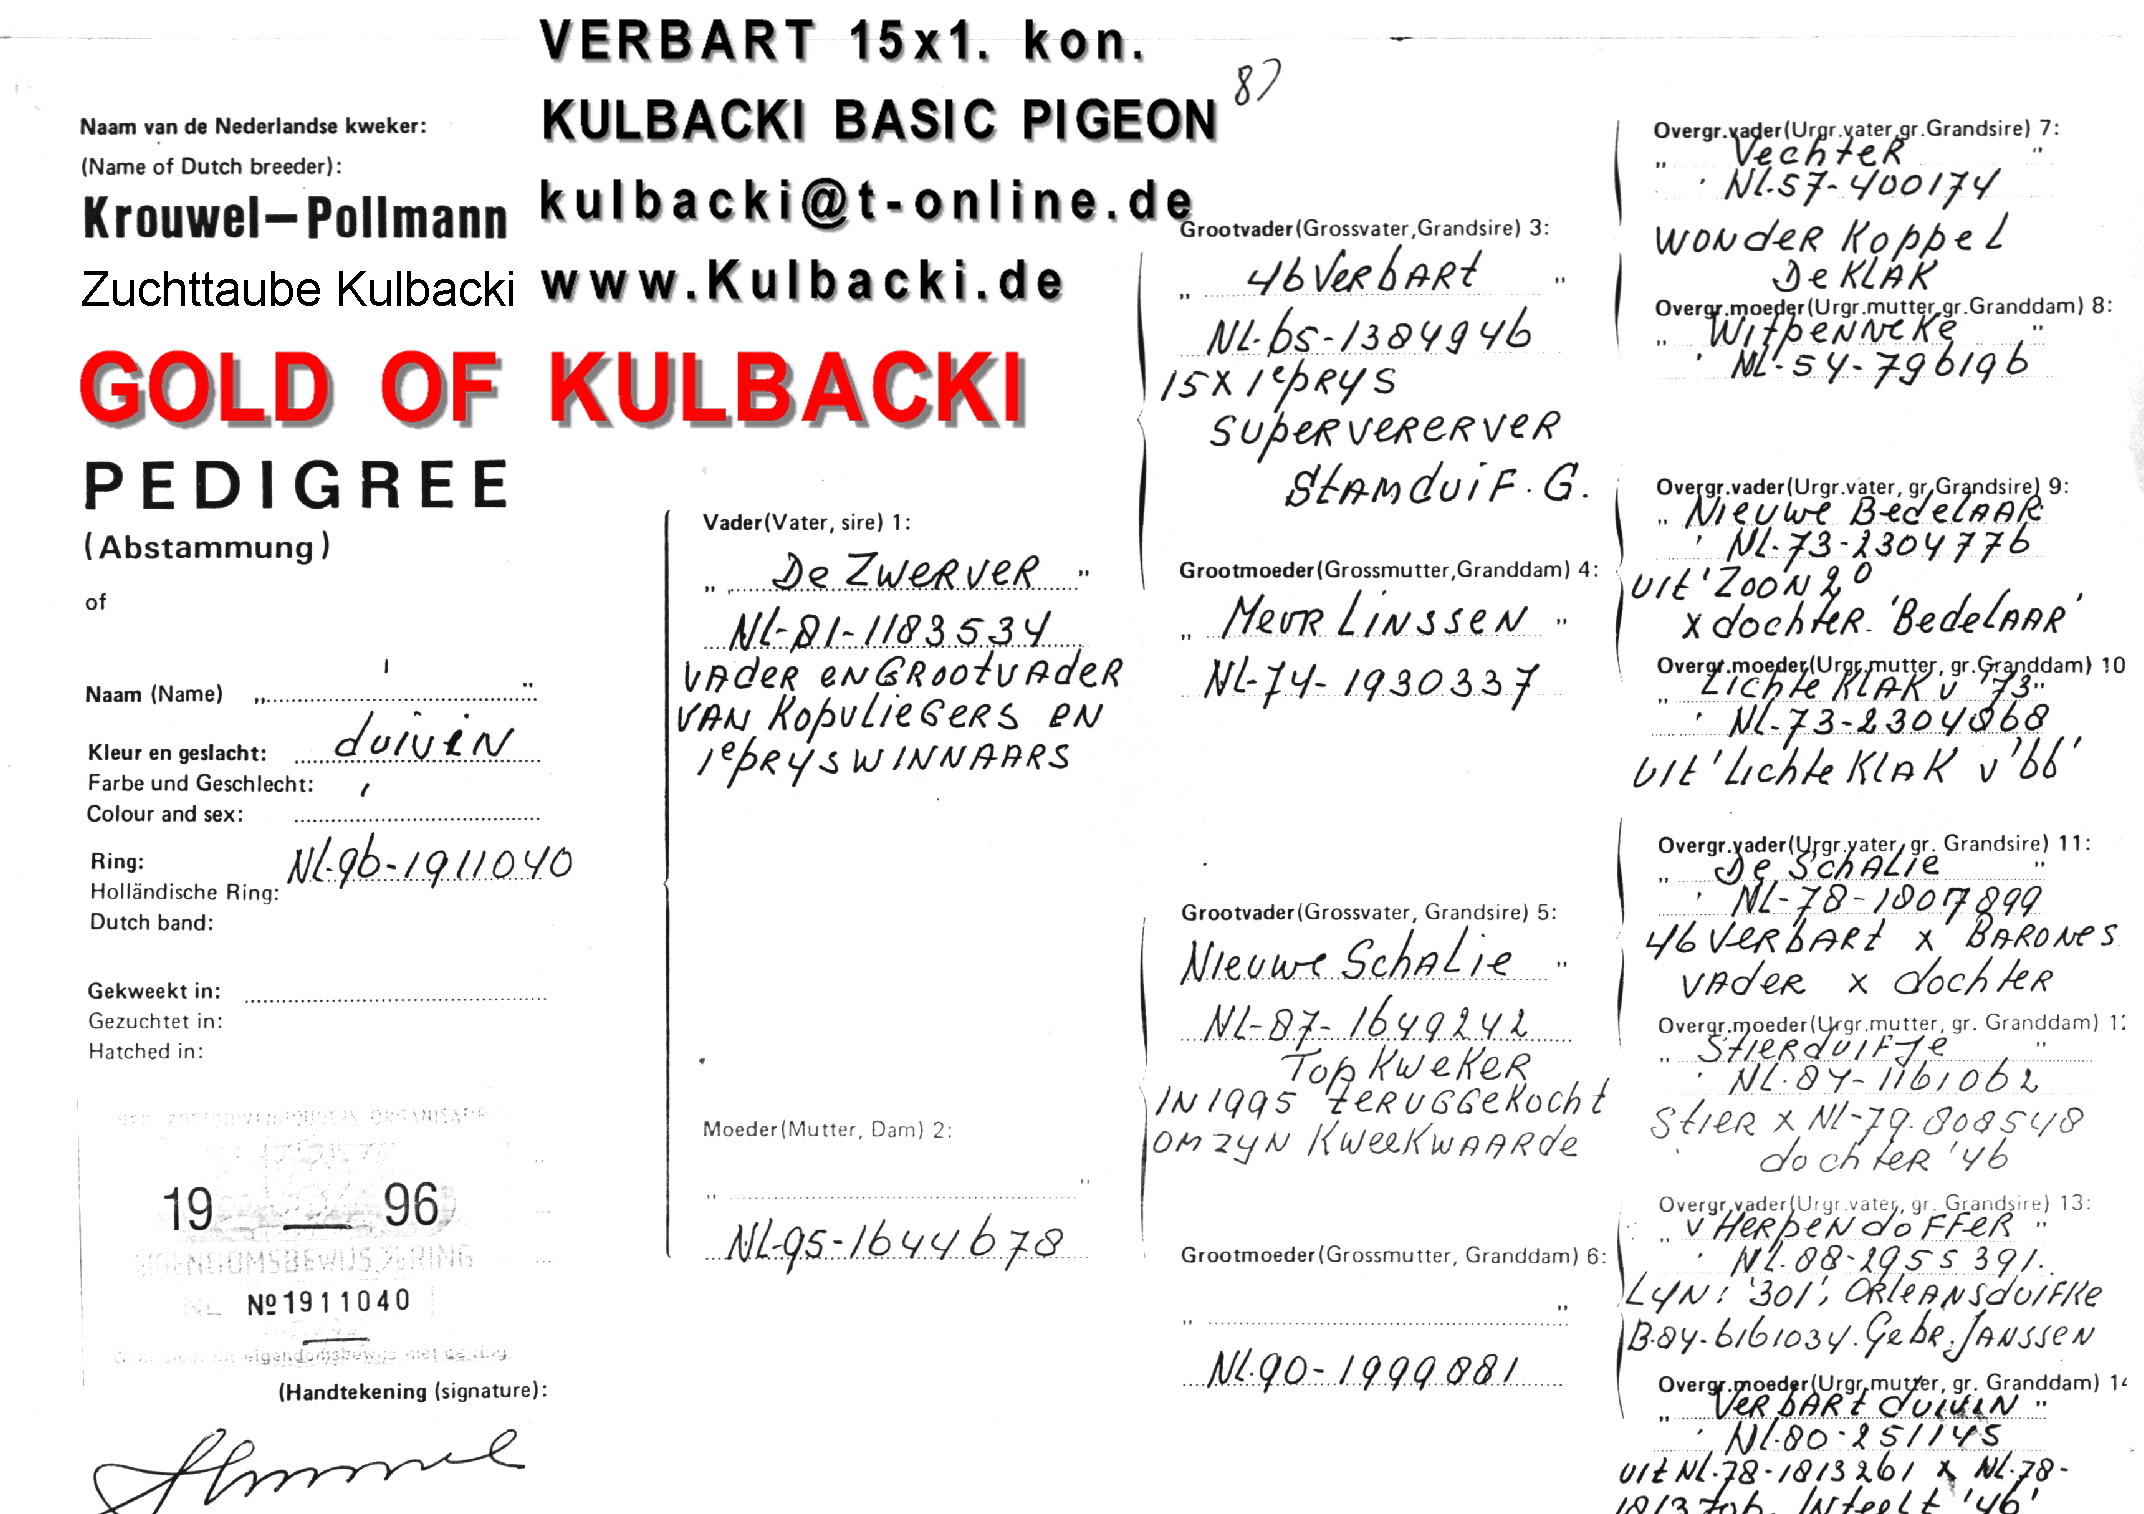 VERBART 15x1. kon.
KULBACKI BASIC PIGEON
87
kulbacki@t-online.de
www.Kulbacki.de
Naam van de Nederlandse kweker:
(Name of Dutch breeder):
Krouwel-Pollmann
Zuchttaube Kulbacki
GOLD OF KULBACKI
PEDIGREE
(Abstammung)
of
Naam (Name) „ "
Kleur en geslacht: duivin
Farbe und Geschlecht:
Colour and sex:
Ring: NL-96-1911040
Holländische Ring:
Dutch band:
Gekweekt in:
Gezuchtet in:
Hatched in:
19 __ 96
EIGENDOMSBEWIJS RING
NL Nº 1911040
(Handtekening (signature):
Vader(Vater, sire) 1:
„ De Zwerver "
NL-81-1183534
Vader en Grootvader
van Kopvliegers en
1e prys winnaars
Moeder(Mutter, Dam) 2:
„ "
NL-95-1644678
Grootvader(Grossvater,Grandsire) 3:
„ 46 Verbart "
NL-65-1384946
15 x 1e prys
Supervererver
Stamduif. G.
Grootmoeder(Grossmutter,Granddam) 4:
„ Mevr Linssen "
NL-74-1930337
Grootvader(Grossvater, Grandsire) 5:
Nieuwe Schalie "
NL-87-1649242
Top Kweker
in 1995 teruggekocht
om zyn Kweekwaarde
Grootmoeder(Grossmutter, Granddam) 6:
„ "
NL-90-1999881
Overgr.vader(Urgr.vater,gr.Grandsire) 7:
„ Vechter "
NL-57-400174
Wonder Koppel
De Klak
Overgr.moeder(Urgr.mutter,gr.Granddam) 8:
„ Witpenneke "
NL-54-796196
Overgr.vader(Urgr.vater, gr.Grandsire) 9:
„ Nieuwe Bedelaar
NL-73-2304776
uit 'Zoon 20
x dochter 'Bedelaar'
Overgr.moeder(Urgr.mutter, gr.Granddam) 10
„ Lichte Klak v '73"
NL-73-2304868
uit 'Lichte Klak v '66'
Overgr.vader(Urgr.vater, gr. Grandsire) 11:
„ De Schalie "
NL-78-1807899
46 Verbart x Barones
Vader x dochter
Overgr.moeder(Urgr.mutter, gr. Granddam) 12
„ Stierduifje "
NL-84-1161062
Stier x NL-79-808548
dochter '46
Overgr.vader(Urgr.vater, gr. Grandsire) 13:
„ v Herpen doffer "
NL-88-2955391.
Lyn: '301', Orleansduifke
B-84-6161034. Gebr. Janssen
Overgr.moeder(Urgr.mutter, gr. Granddam) 14
„ Verbart duivin "
NL-80-251145
uit NL-78-1813261 x NL-78-
Inteelt '46'